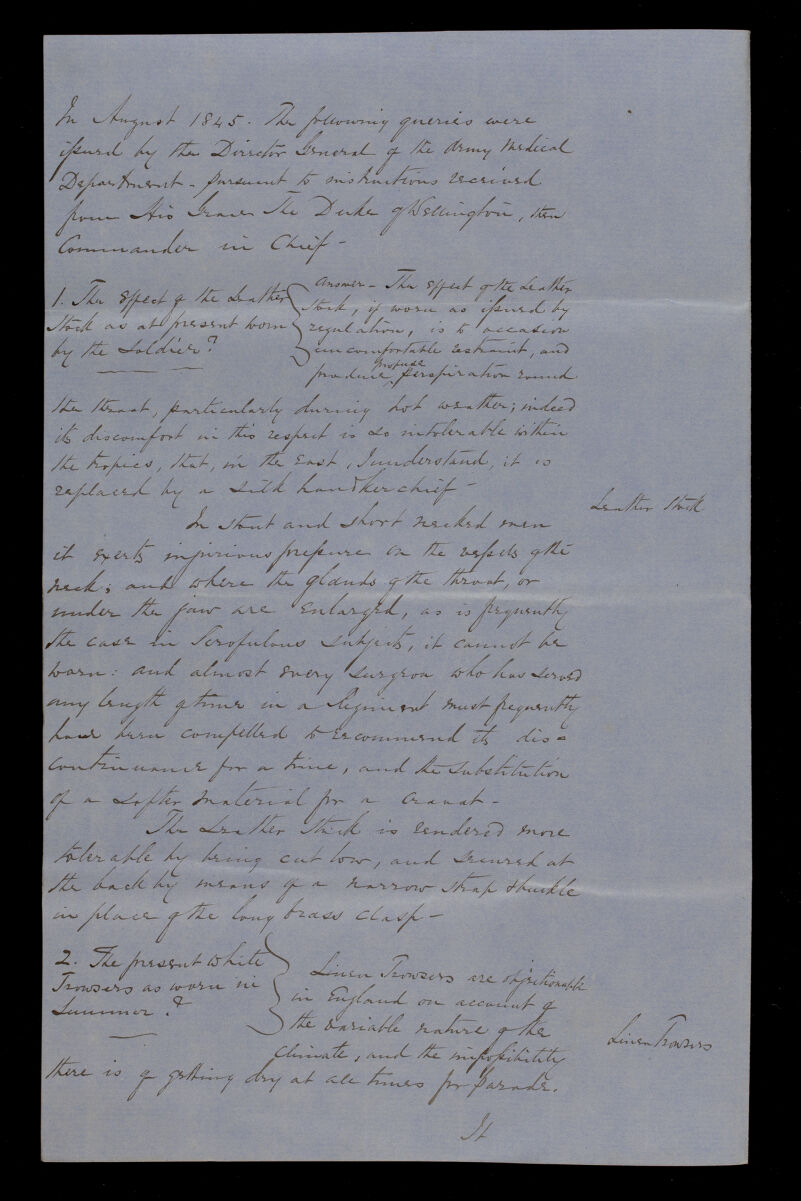 In August 1845. The following queries were
issued by the Director General of the Army Medical
Department - pursuant to instructions received
from His Grace The Duke of Wellington, then
Commander in Chief -
1. The Effect of the Leather
Stock as at present worn
by the Soldier?
Answer - The Effect of the Leather
Stock, if worn as issued by
regulation, is to occasion
uncomfortable restraint, and
produce profuse perspiration round
the throat, particularly during hot weather; indeed
its discomfort in this respect is so intolerable within
the tropics, that, in the East, I understand, it is
replaced by a silk handkerchief -
Leather Stock
In stout and short necked men
it exerts injurious pressure on the vessels of the
neck; and where the glands of the throat, or
under the jaw are enlarged, as is frequently
the case in Scrofulous subjects, it cannot be
worn: and almost every surgeon who has served
any length of time in a Regiment must frequently
have been compelled to recommend its dis=
continuance for a time, and the substitution
of a softer material for a cravat -
The Leather Stock is rendered more
tolerable by being cut low, and secured at
the back by means of a narrow strap & buckle
in place of the long brass clasp -
2. The present white
Trowsers as worn in
Summer?
Linen Trowsers are objectionable
in England on account of
the variable nature of the
climate, and the impossibility
there is of getting dry at all times for parade.
Linen Trowsers
It